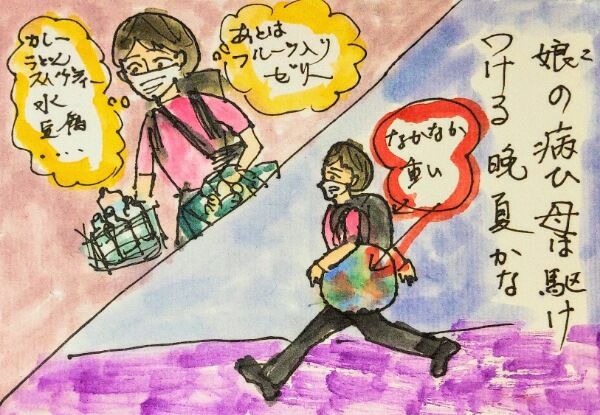 娘の病ひ母は駆け
つける晩夏かな
カレー
うどん
スパゲティー
水
豆腐
...
あとは
フルーツ入り
ゼリー
なかなか
重い